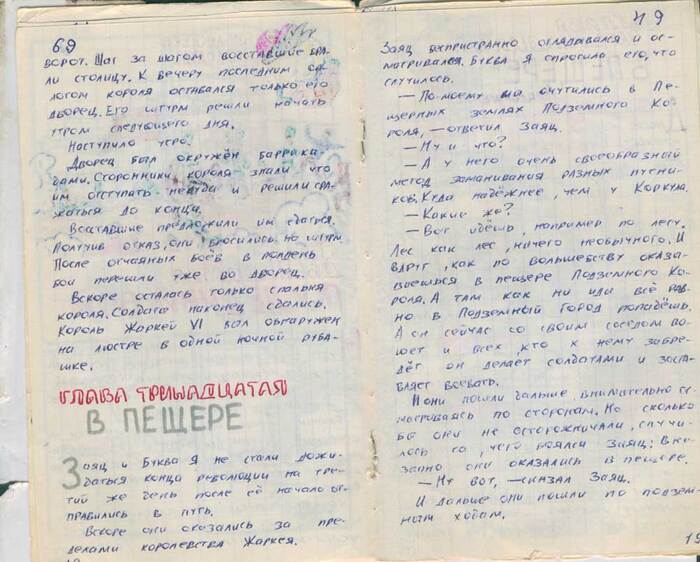 69
ворот. Шаг за шагом восставшие бра-
ли столицу. К вечеру последним оп-
логом короля оставался только его
дворец. Его штурм решили начать
утром следующего дня.
Наступило утро.
Дворец был окружён баррика-
дами. Сторонники короля знали что
им отступать некуда и решили сра-
жаться до конца.
Восставшие предложили им сдаться.
Получив отказ, они бросились на штурм.
После отчаяных боёв в полдень
бои перешли уже во дворец.
Вскоре осталась только спальня
короля. Солдаты наконец сдались.
Король Жаркей VI был обнаружен
на люстре в одной ночной руба-
шке.
ГЛАВА ТРИНАДЦАТАЯ
В ПЕЩЕРЕ
Заяц и Буква Я не стали дожи-
даться конца революции на тре-
тий же день после её начала от-
правились в путь.
Вскоре они оказались за пре-
делами королевства Жаркея.
49
Заяц беспристранно оглядывался и ос-
матривался. Буква Я спросила его, что
случилось.
— По-моему мы очутились в Пе-
щерных землях Подземного Ко-
роля, — ответил Заяц.
— Ну и что?
— А у него очень своеобразный
метод заманивания разных путни-
ков. Куда надёжнее, чем у Коркула.
— Какие же?
— Вот идёшь, например по лесу.
Лес как лес, ничего необычного. И
вдруг, как по волшебству оказы-
ваешься в пещере Подземного Ко-
роля. А там как ни иди всё рав-
но в Подземный Город попадёшь.
А он сейчас со своим соседом во-
юет и всех кто к нему забре-
дёт он делает солдатами и заста-
вляет воевать.
И они пошли дальше, внимательно ос-
матриваясь по сторонам. Но сколько
бы они не осторожничали, случи-
лось то, чего боялся Заяц: Вне-
запно они оказались в пещере.
— Ну вот, — сказал Заяц.
И дальше они пошли по подзем-
ным ходам.
19